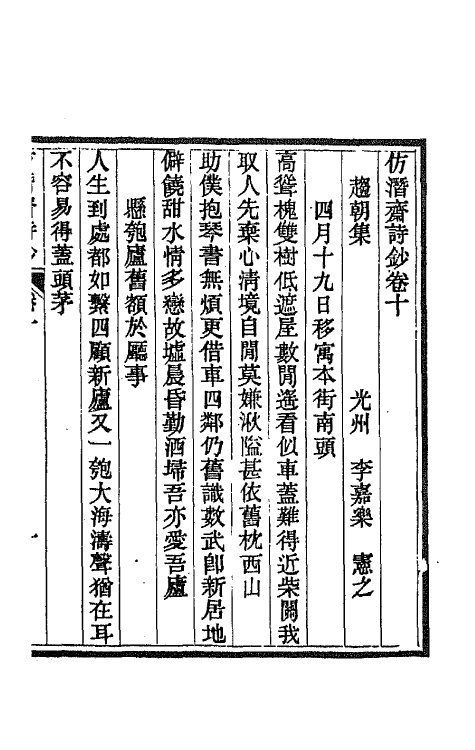 仿潛齋詩鈔卷十
趨朝集　光州　李嘉樂　憲之
四月十九日移寓本街南頭
高聳槐雙樹低遮屋數間遙看似車蓋難得近柴關我
取人先棄心清境自閒莫嫌湫隘甚依舊枕西山
助僕抱琴書無煩更借車四鄰仍舊識數武卽新居地
僻饒甜水情多戀故墟晨昏勤洒埽吾亦愛吾廬
懸匏廬舊額於廳事
人生到處都如繫四顧新廬又一匏大海濤聲猶在耳
不容易得蓋頭茅